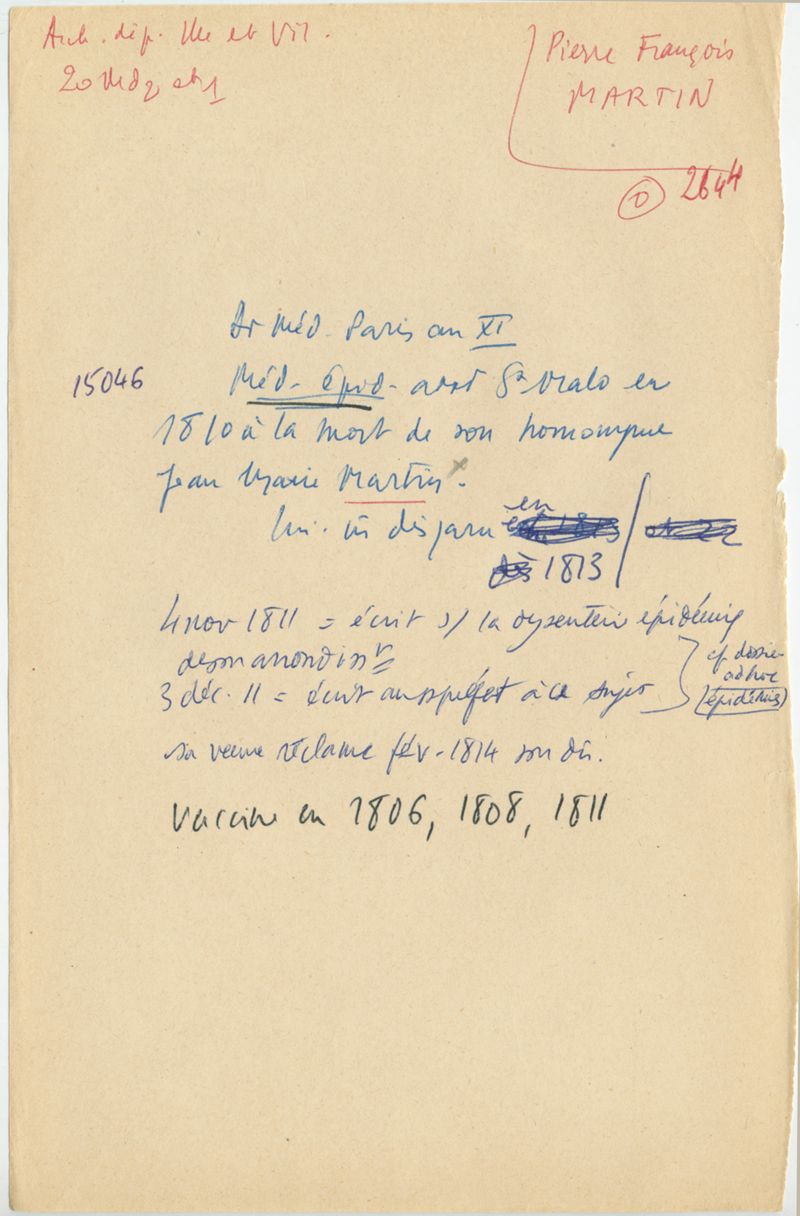 Arch. dép. Ille et Vil.
20 Md2 et 1
Pierre François
MARTIN
D 2644
Dr Méd. Paris an XI
15046
Méd. épid. arrdt St Malo en
1810 à la mort de son homonyme
Jean Marie Martin x.
lui. m disparu en
1813
4 nov 1811 = écrit s/ la dysenterie épidémiq
de son arrondisst
3 déc. 11 = écrit au sspréfet à ce sujet
cf dossier
ad hoc
(épidémies)
sa veuve réclame fév. 1814 son dû.
Vaccine en 1806, 1808, 1811